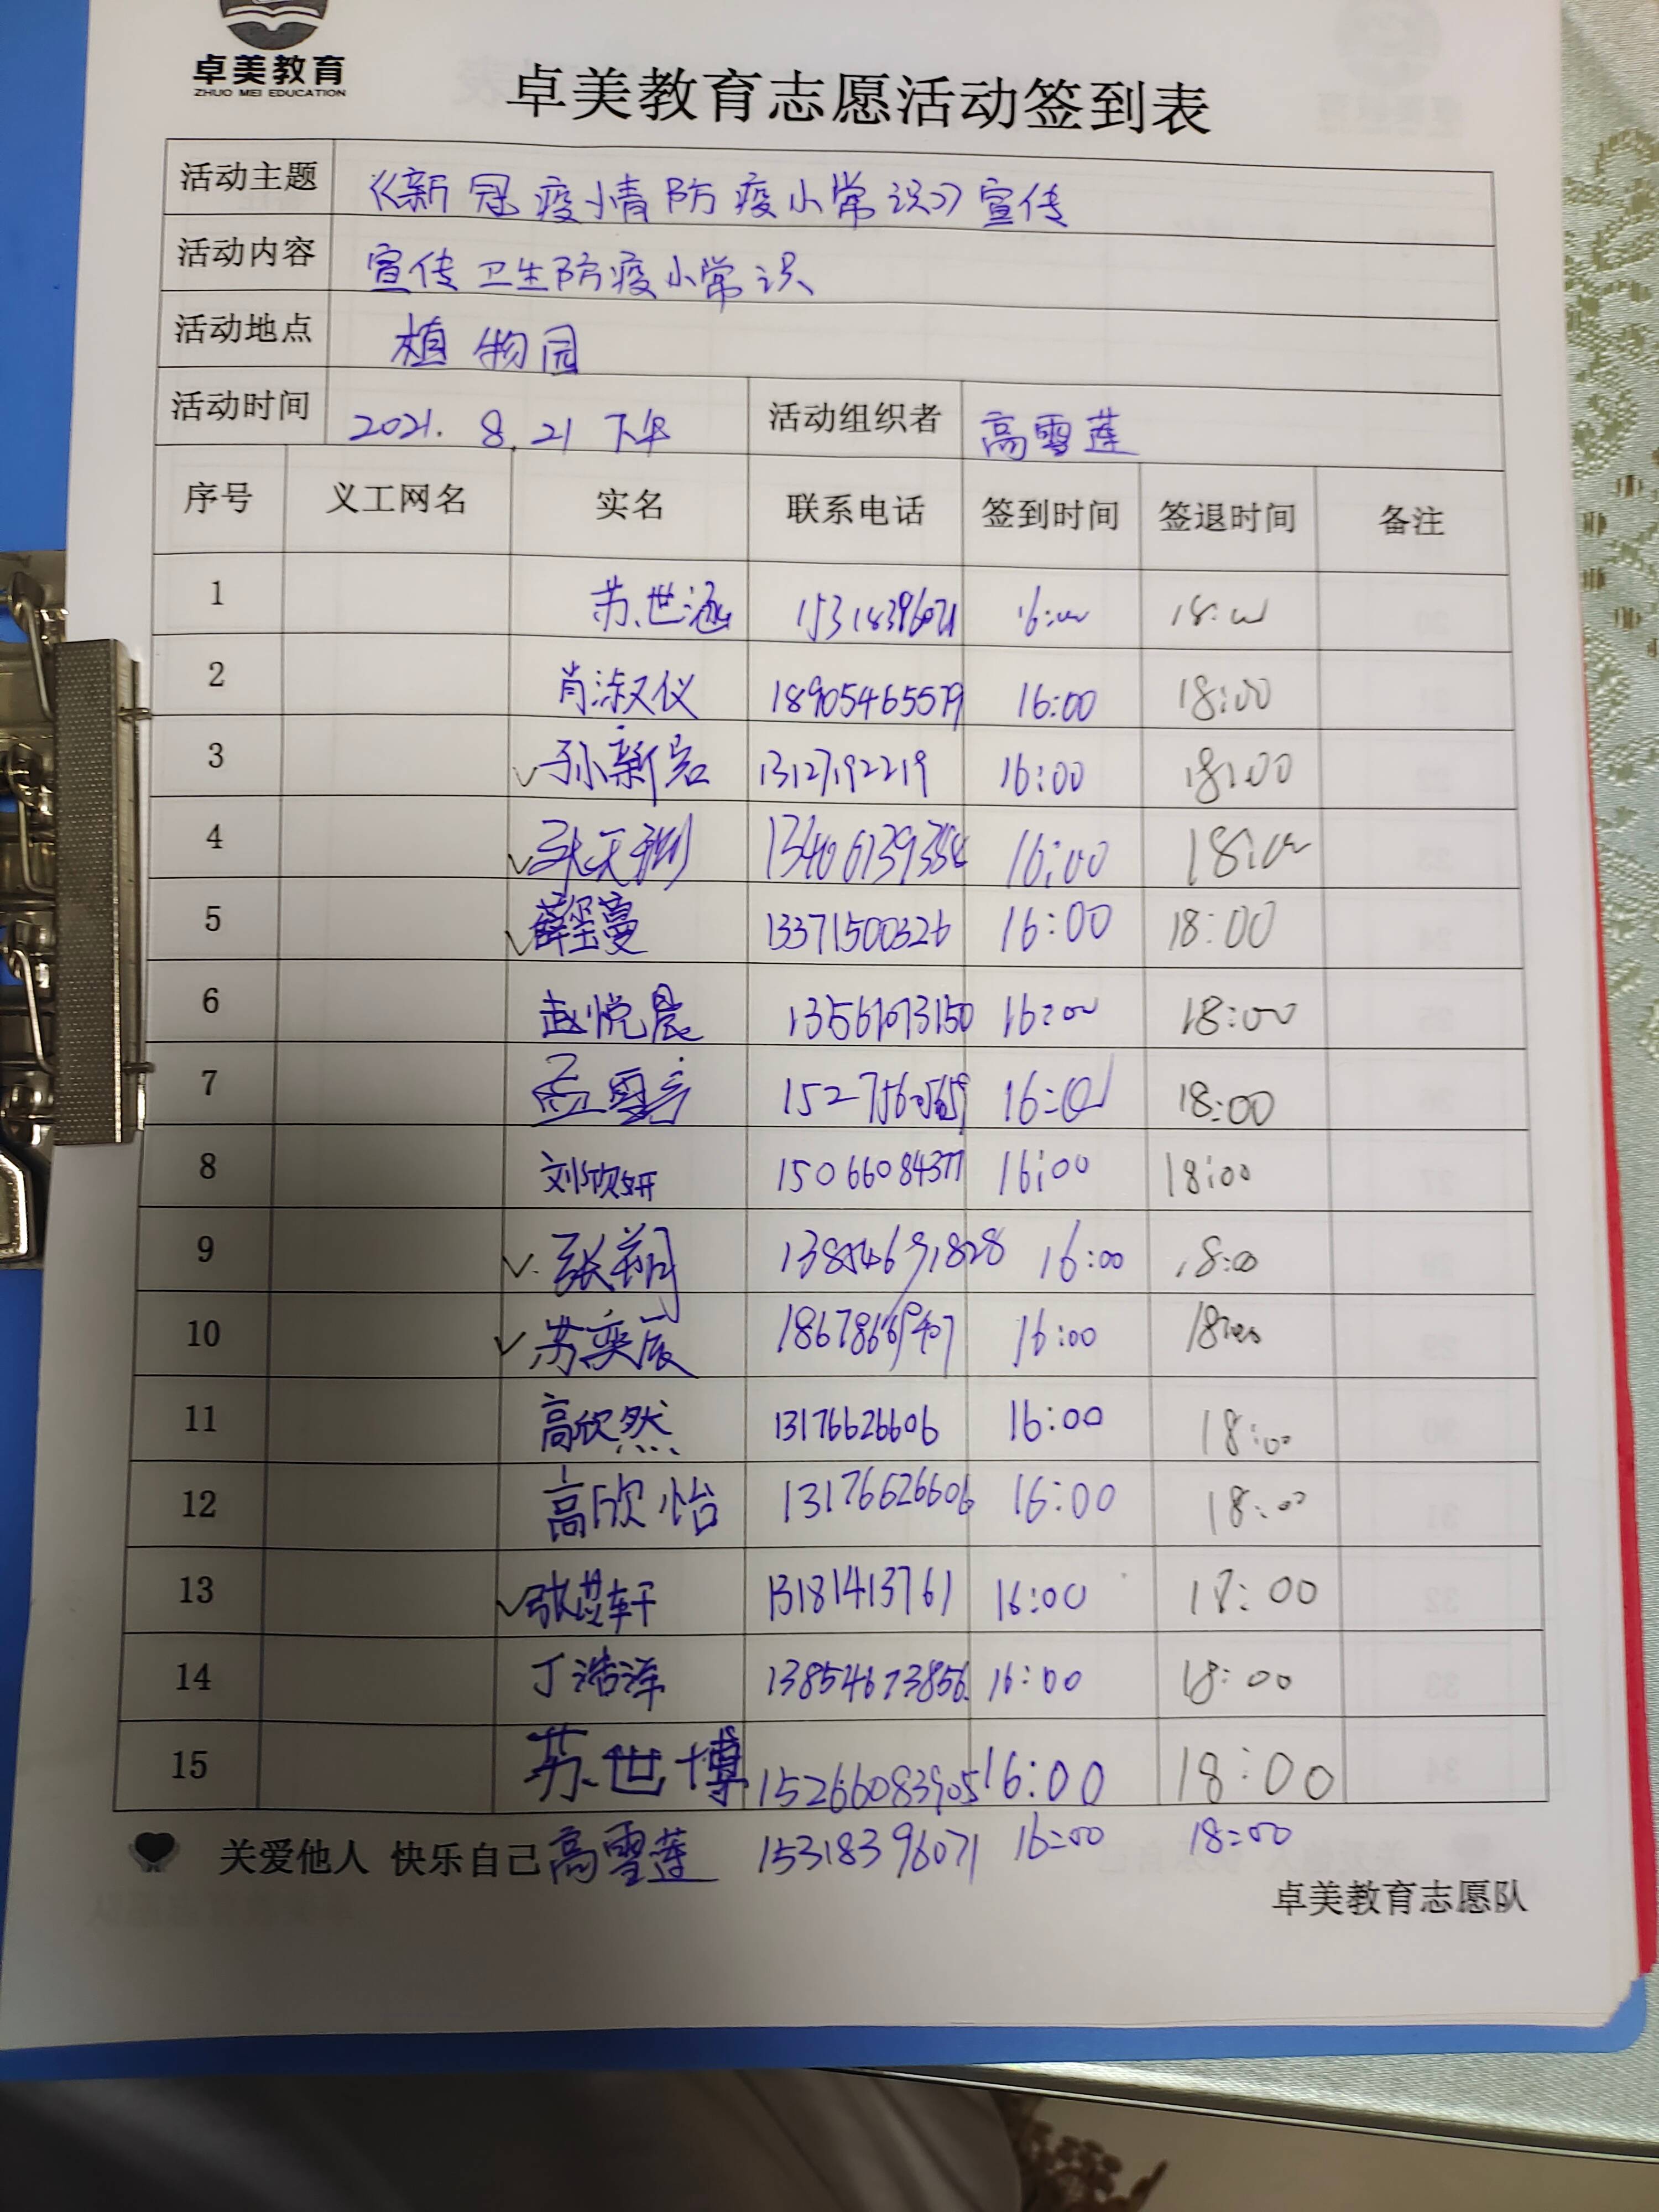 卓美教育
ZHUO MEI EDUCATION
卓美教育志愿活动签到表
活动主题 《新冠疫情防疫小常识》宣传
活动内容 宣传卫生防疫小常识
活动地点 植物园
活动时间 2021.8.21 下午 活动组织者 高雪莲
序号 义工网名 实名 联系电话 签到时间 签退时间 备注
1 苏世涵 15318396071 16:00 18:00
2 肖淑仪 18905465579 16:00 18:00
3 孙新宕 1312792219 16:00 18:00
4 张天翔 16:00 18:00
5 薛玺蔓 13371500326 16:00 18:00
6 赵悦晨 16:00 18:00
7 孟雪 16:00 18:00
8 刘欣妍 15066084377 16:00 18:00
9 张朔 13854691828 16:00 18:00
10 苏奕辰 16:00 18:00
11 高欣然 13176626606 16:00 18:00
12 高欣怡 13176626606 16:00 18:00
13 张芷轩 13181413761 16:00 18:00
14 丁浩泽 13854673856 16:00 18:00
15 苏世博 15266083905 16:00 18:00
关爱他人 快乐自己 高雪莲 15318396071 16:00 18:00
卓美教育志愿队